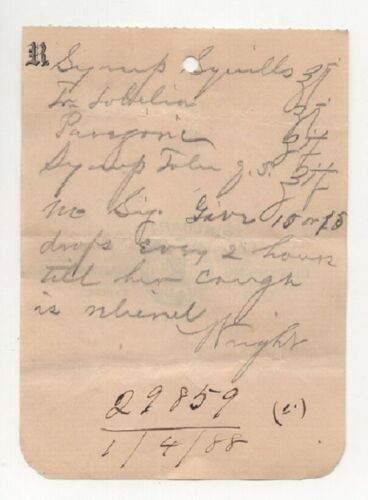 R Syrup Squills ℥j
Tr Lobelia ℥j
Paregoric ℥ii
Syrup Tolu q.s. ℥iv
M Sig. Give 10 or 15
drops every 2 hours
till her cough
is relieved
Wright
29859
1/4/88